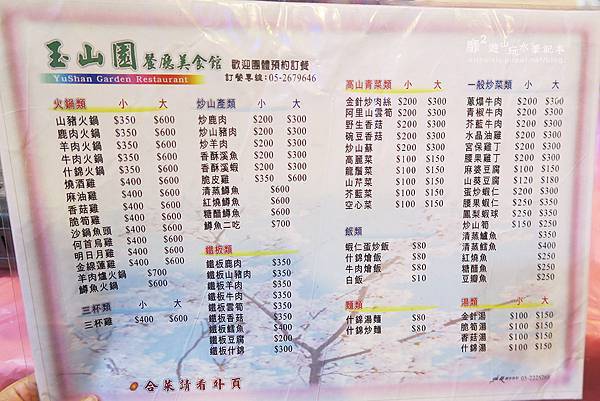 玉山園 餐廳美食館
YuShan Garden Restaurant
歡迎團體預約訂餐
訂餐專線:05-2679646
火鍋類 小 大
山豬火鍋 $350 $600
鹿肉火鍋 $350 $600
羊肉火鍋 $350 $600
牛肉火鍋 $350 $600
什錦火鍋 $350 $600
燒酒雞 $400 $600
麻油雞 $400 $600
香菇雞 $400 $600
脆筍雞 $400 $600
沙鍋魚頭 $400 $600
何首烏雞 $400 $600
明日月雞 $400 $600
金線蓮雞 $400 $600
羊肉爐火鍋 $700
鱒魚火鍋 $600
三杯類 小 大
三杯雞 $400 $600
炒山產類 小 大
炒鹿肉 $200 $300
炒山豬肉 $200 $300
炒羊肉 $200 $300
香酥溪魚 $200 $300
香酥溪蝦 $200 $300
脆皮雞 $350 $600
清蒸鱒魚 $600
紅燒鱒魚 $600
糖醋鱒魚 $600
鱒魚二吃 $700
鐵板類
鐵板鹿肉 $350
鐵板山豬肉 $350
鐵板羊肉 $350
鐵板牛肉 $350
鐵板雲筍 $350
鐵板香菇 $350
鐵板鱈魚 $400
鐵板豆腐 $200
鐵板什錦 $300
高山青菜類 小 大
金針炒肉絲 $200 $300
阿里山雲筍 $200 $300
野生香菇 $200 $300
碗豆香菇 $200 $300
炒山蘇 $200 $300
高麗菜 $100 $150
龍鬚菜 $100 $150
山芹菜 $100 $150
芥藍菜 $100 $150
空心菜 $100 $150
飯類
蝦仁蛋炒飯 $80
什錦燴飯 $80
牛肉燴飯 $80
白飯 $10
麵類
什錦湯麵 $80
什錦炒麵 $80
一般炒菜類 小 大
蔥爆牛肉 $200 $300
青椒牛肉 $200 $300
芥藍牛肉 $200 $300
水晶油雞 $200 $300
宮保雞丁 $200 $300
腰果雞丁 $200 $300
麻婆豆腐 $100 $150
山葵豆腐 $120 $180
蛋炒蝦仁 $200 $300
腰果蝦仁 $250 $350
鳳梨蝦球 $250 $350
炒山筍 $150 $250
清蒸鱸魚 $350
清蒸鱈魚 $400
紅燒魚 $250
糖醋魚 $250
豆瓣魚 $250
湯類 小 大
金針湯 $100 $150
脆筍湯 $100 $150
香菇湯 $100 $150
什錦湯 $100 $150
合菜請看外頁